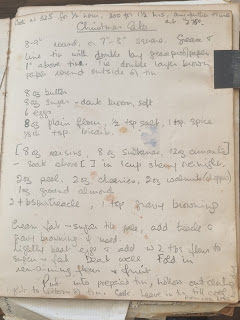 Cook at 325 for ½ hour, 300 for 1½ hrs, any further time
at 275°
Christmas Cake
8-9" round, or 7"-8" square. Grease &
line tin with double by greaseproof paper
1" above tin. Tie double layer brown
paper round outside of tin
8 oz butter
8 oz sugar - dark brown, soft
6 eggs
8 oz plain flour, ½ tsp salt, 1 tsp spice
[8 oz raisins, 8 oz sultanas, 12 oz currants]
- soak above [ ] in 1 cup sherry overnight
2 oz peel, 2 oz cherries, 2 oz walnuts (chopped)
1 oz ground almond
2 tbsp treacle, 1 tsp gravy browning
Cream fat & sugar till pale, add treacle &
gravy browning if used.
Lightly beat eggs & add w 2 tbs flour to
sugar & fat. Beat well. Fold in
remaining flour & fruit
Put into prepared tin, hollow out
till cool